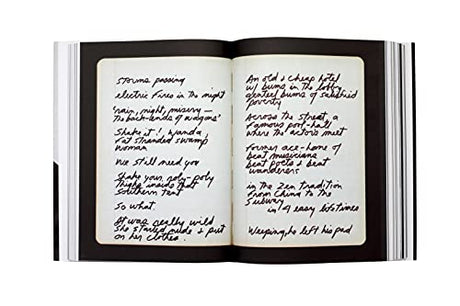 Storms passing
electric fires in the night
"rain, night, misery —
the back-ends of wagons"
Shake it! Wanda,
Fat stranded swamp
woman
We still need you
Shake your roly-poly
Thighs inside that
Southern tent
So what.
It was really wild
She started nude & put
on her clothes.
An old & cheap hotel
w/ bums in the lobby
genteel bums of satisfied
poverty
Across the street, a
famous pool-hall
where the actors meet
Former ace-home of
beat musicians
beat poets & beat
wanderers
in the Zen tradition
from China to the
Subway
in 4 easy lifetimes
Weeping, he left his pad